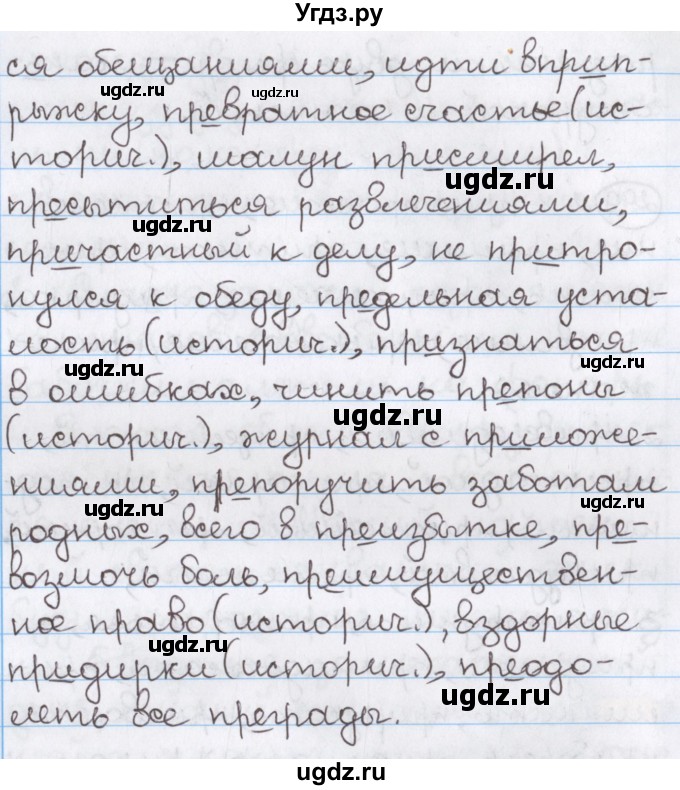 Угдз.ру
ся обещаниями, идти вприп-
рыжку, превратное счастье (ис-
торич.), шалун присмирел,
пресытиться развлечениями,
причастный к делу, не притро-
нулся к обеду, предельная уста-
лость (историч.), признаться
в ошибках, чинить препоны
(историч.), журнал с приложе-
ниями, препоручить заботам
родных, всего в преизбытке, пре-
возмочь боль, преимуществен-
ное право (историч.), вздорные
придирки (историч.), преодо-
леть все преграды.
ugdz.ru
ugdz.ru
ugdz.ru
ugdz.ru
ugdz.ru
ugdz.ru
ugdz.ru
ugdz.ru
ugdz.ru
ugdz.ru
ugdz.ru
ugdz.ru